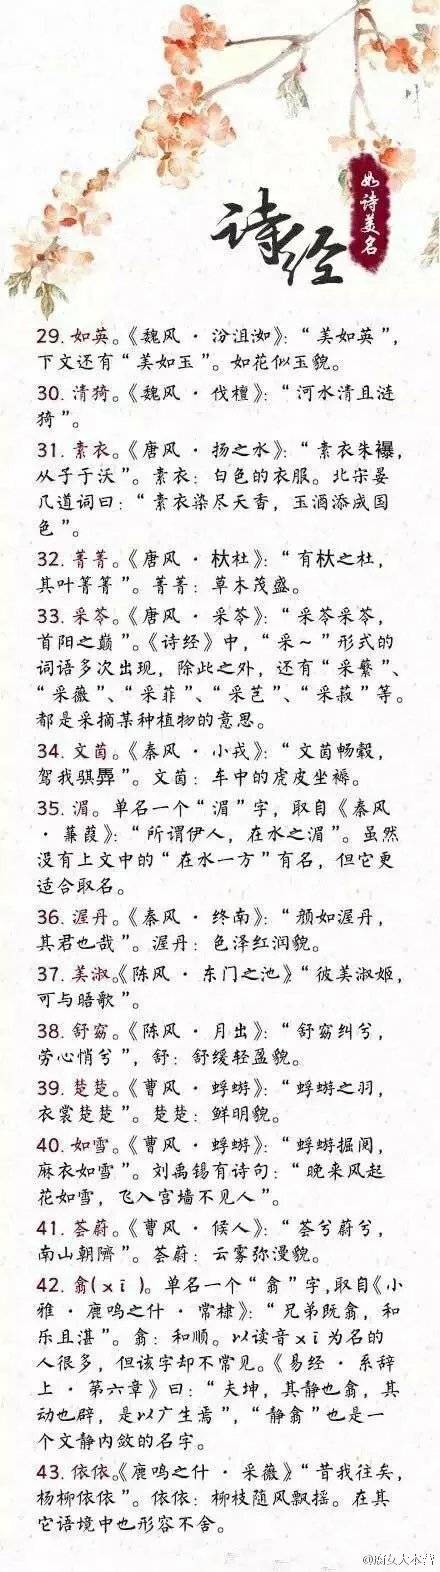 诗经
如诗美名
29. 如英。《魏风 · 汾沮洳》：“美如英”，
下文还有“美如玉”。如花似玉貌。
30. 清猗。《魏风 · 伐檀》：“河水清且涟
猗”。
31. 素衣。《唐风 · 扬之水》：“素衣朱襮，
从子于沃”。素衣：白色的衣服。北宋晏
几道词曰：“素衣染尽天香，玉酒添成国
色”。
32. 菁菁。《唐风 · 杕杜》：“有杕之杜，
其叶菁菁”。菁菁：草木茂盛。
33. 采苓。《唐风 · 采苓》：“采苓采苓，
首阳之巅”。《诗经》中，“采～”形式的
词语多次出现，除此之外，还有“采蘩”、
“采薇”、“采菲”、“采芑”、“采菽”等。
都是采摘某种植物的意思。
34. 文茵。《秦风 · 小戎》：“文茵畅毂，
驾我骐馵”。文茵：车中的虎皮坐褥。
35. 湄。单名一个“湄”字，取自《秦风
· 蒹葭》：“所谓伊人，在水之湄”。虽然
没有上文中的“在水一方”有名，但它更
适合取名。
36. 渥丹。《秦风 · 终南》：“颜如渥丹，
其君也哉”。渥丹：色泽红润貌。
37. 美淑。《陈风 · 东门之池》“彼美淑姬，
可与晤歌”。
38. 舒窈。《陈风 · 月出》：“舒窈纠兮，
劳心悄兮”，舒：舒缓轻盈貌。
39. 楚楚。《曹风 · 蜉蝣》：“蜉蝣之羽，
衣裳楚楚”。楚楚：鲜明貌。
40. 如雪。《曹风 · 蜉蝣》：“蜉蝣掘阅，
麻衣如雪”。刘禹锡有诗句：“晚来风起
花如雪，飞入宫墙不见人”。
41. 荟蔚。《曹风 · 候人》：“荟兮蔚兮，
南山朝隮”。荟蔚：云雾弥漫貌。
42. 翕(xī)。单名一个“翕”字，取自《小
雅 · 鹿鸣之什 · 常棣》：“兄弟既翕，和
乐且湛”。翕：和顺。以读音xī为名的
人很多，但该字却不常见。《易经 · 系辞
上 · 第六章》曰：“夫坤，其静也翕，其
动也辟，是以广生焉”，“静翕”也是一
个文静内敛的名字。
43. 依依。《鹿鸣之什 · 采薇》“昔我往矣，
杨柳依依”。依依：柳枝随风飘摇。在其
它语境中也形容不舍。
@腐女大本营